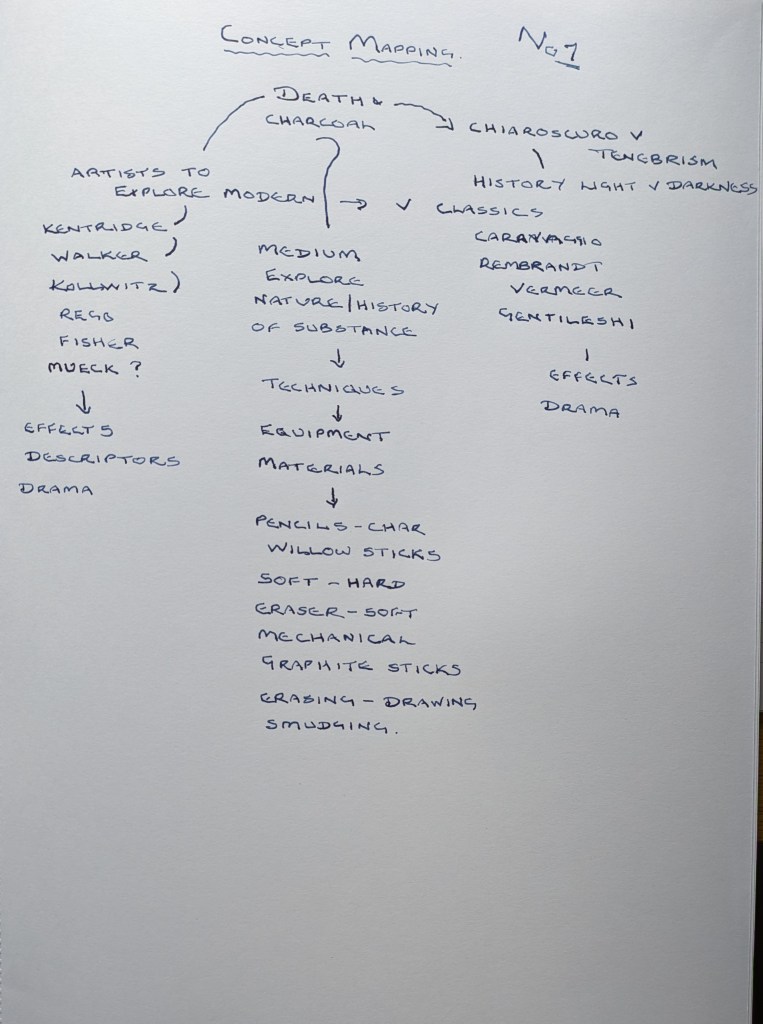 CONCEPT MAPPING.
No 1
DEATH &
CHARCOAL
CHIAROSCURO V
TENEBRISM
HISTORY LIGHT V DARKNESS
ARTISTS TO
EXPLORE MODERN → V CLASSICS
KENTRIDGE
WALKER
KOLLWITZ
REGO
FISHER
MUECK ?
EFFECTS
DESCRIPTORS
DRAMA
MEDIUM
EXPLORE
NATURE/HISTORY
OF SUBSTANCE
TECHNIQUES
EQUIPMENT
MATERIALS
PENCILS - CHAR
WILLOW STICKS
SOFT - HARD
ERASER - SOFT
MECHANICAL
GRAPHITE STICKS
ERASING - DRAWING
SMUDGING.
CARAVAGGIO
REMBRANDT
VERMEER
GENTILESHI
EFFECTS
DRAMA